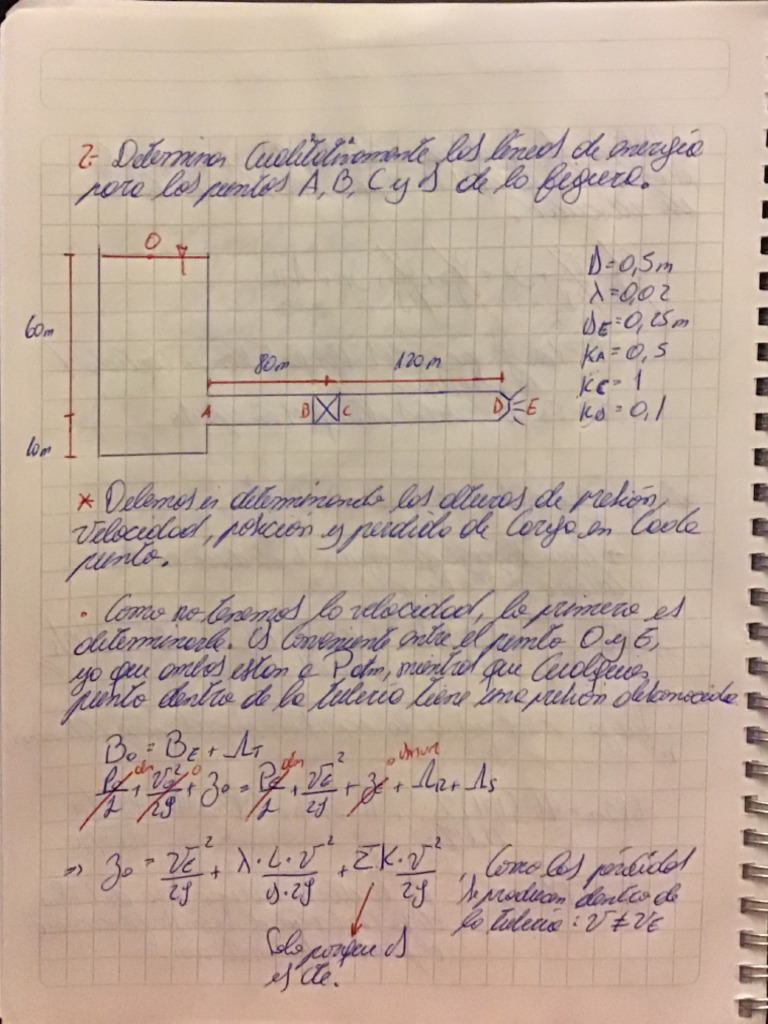 2- Determinar Cualitativamente las líneas de energía
para los puntos A, B, C y D de la figura.
O
60m
10m
80m
120m
A
B
C
D
E
D=0,5m
λ=0,02
DE=0,25m
KA=0,5
KC=1
KD=0,1
* Debemos ir determinando las alturas de presión,
velocidad, posición y pérdida de Carga en Cada
punto.
• Como no tenemos la velocidad, lo primero es
determinarla. Es Conveniente entre el punto O y E,
ya que ambos estan a Patm, mientras que Cualquier
punto dentro de la tubería tiene una presión desconocida.
B0 = BE + ΛT
P0/γ + v0²/2g + z0 = PE/γ + vE²/2g + zE + ΛR + ΛS
atm 0 atm 0
⇒ z0 = vE²/2g + λ·L·v²/D·2g + ΣK·v²/2g , Como las pérdidas
se producen dentro de
la tubería: v ≠ vE
Sale porque D
es cte.